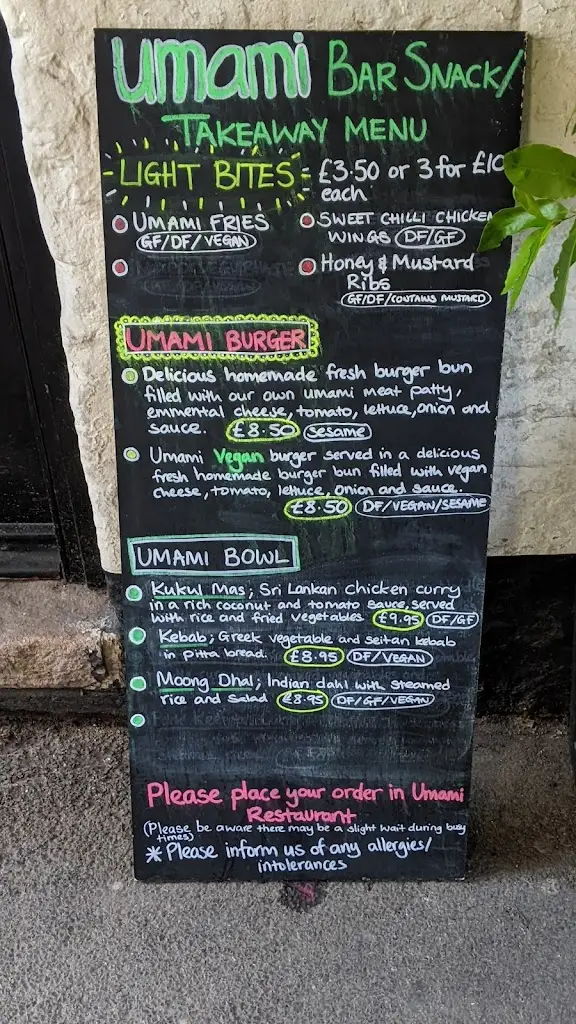 umami BAR SNACK/
TAKEAWAY MENU
LIGHT BITES £3.50 or 3 for £10
each
UMAMI FRIES
GF/DF/VEGAN
SWEET CHILLI CHICKEN
WINGS DF/GF
Honey & Mustard
Ribs
GF/DF/CONTAINS MUSTARD
UMAMI BURGER
Delicious homemade fresh burger bun
filled with our own umami meat patty,
emmental cheese, tomato, lettuce, onion and
sauce. £8.50 SESAME
Umami Vegan burger served in a delicious
fresh homemade burger bun filled with vegan
cheese, tomato, lettuce, onion and sauce.
£8.50 DF/VEGAN/SESAME
UMAMI BOWL
Kukul Mas; Sri Lankan chicken curry
in a rich coconut and tomato sauce, served
with rice and fried vegetables £9.95 DF/GF
Kebab; Greek vegetable and seitan kebab
in pitta bread. £8.95 DF/VEGAN
Moong Dhal; Indian dahl with steamed
rice and salad £8.95 DF/GF/VEGAN
Please place your order in Umami
Restaurant
(Please be aware there may be a slight wait during busy
times)
* Please inform us of any allergies/
intolerances